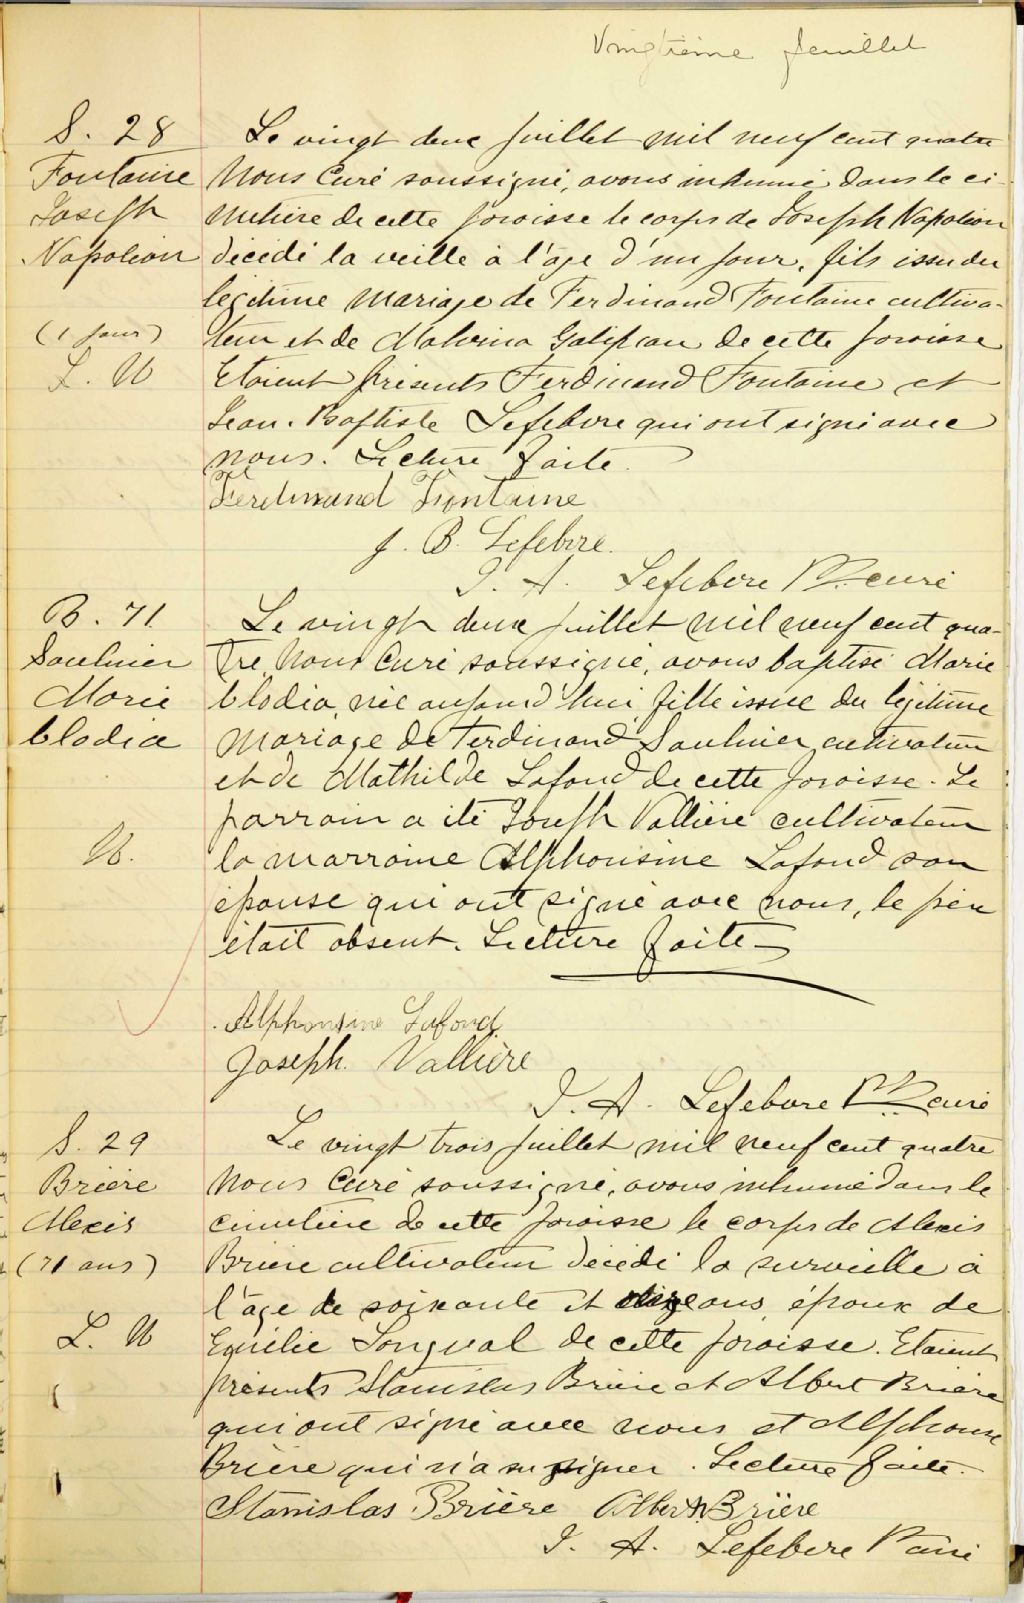 Vingtième feuillet
S. 28
Fontaine
Joseph
Napoléon
(1 jour)
L. N
Le vingt deux Juillet mil neuf cent quatre
Nous Curé soussigné, avons inhumé dans le ci-
metière de cette paroisse le corps de Joseph Napoléon
décédé la veille à l'âge d'un jour, fils issu du
légitime mariage de Ferdinand Fontaine cultiva-
teur et de Malvina Galipeau de cette paroisse
Etaient présents Ferdinand Fontaine et
Jean-Baptiste Lefebvre qui ont signé avec
nous. Lecture faite.
Ferdinand Fontaine
J. B. Lefebvre.
J. A. Lefebvre Ptre curé
B. 71
Saulnier
Marie
Clodia
N.
Le vingt deux Juillet mil neuf cent qua-
tre Nous Curé soussigné, avons baptisé Marie
Clodia, née aujourd'hui, fille issue du légitime
mariage de Ferdinand Saulnier cultivateur
et de Mathilde Lafond de cette paroisse. Le
parrain a été Joseph Vallière cultivateur
la marraine Alphonsine Lafond son
épouse qui ont signé avec nous, le père
était absent. Lecture faite
Alphonsine Lafond
Joseph Vallière
J. A. Lefebvre Ptre curé
S. 29
Brière
Alexis
(71 ans)
L. N
Le vingt trois Juillet mil neuf cent quatre
Nous Curé soussigné, avons inhumé dans le
cimetière de cette paroisse le corps de Alexis
Brière cultivateur décédé la surveille à
l'âge de soixante et onze ans, époux de
Emilie Longval de cette paroisse. Etaient
présents Stanislas Brière et Albert Brière
qui ont signé avec nous et Alphonse
Brière qui n'a su signer. Lecture faite.
Stanislas Brière Albert Brière
J. A. Lefebvre Ptre curé